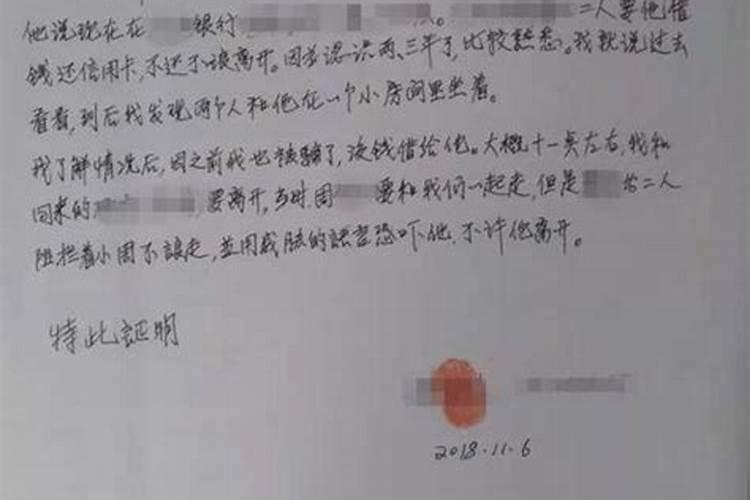 他说现在在 银行 。 二人要他借
钱还信用卡,不还不让离开。因为认识两、三年了,比较熟悉。我就说过去
看看,到后我发现两个人和他在一个小房间里坐着。
我了解情况后,因之前我也被骗了,没钱借给他。大概十一点左右,我和
同来的 要离开,当时周 要和我们一起走,但是 等二人
阻拦着小周不让走,並用威胁的語言恐吓他,不许他离开。
特此証明
2018.11.6